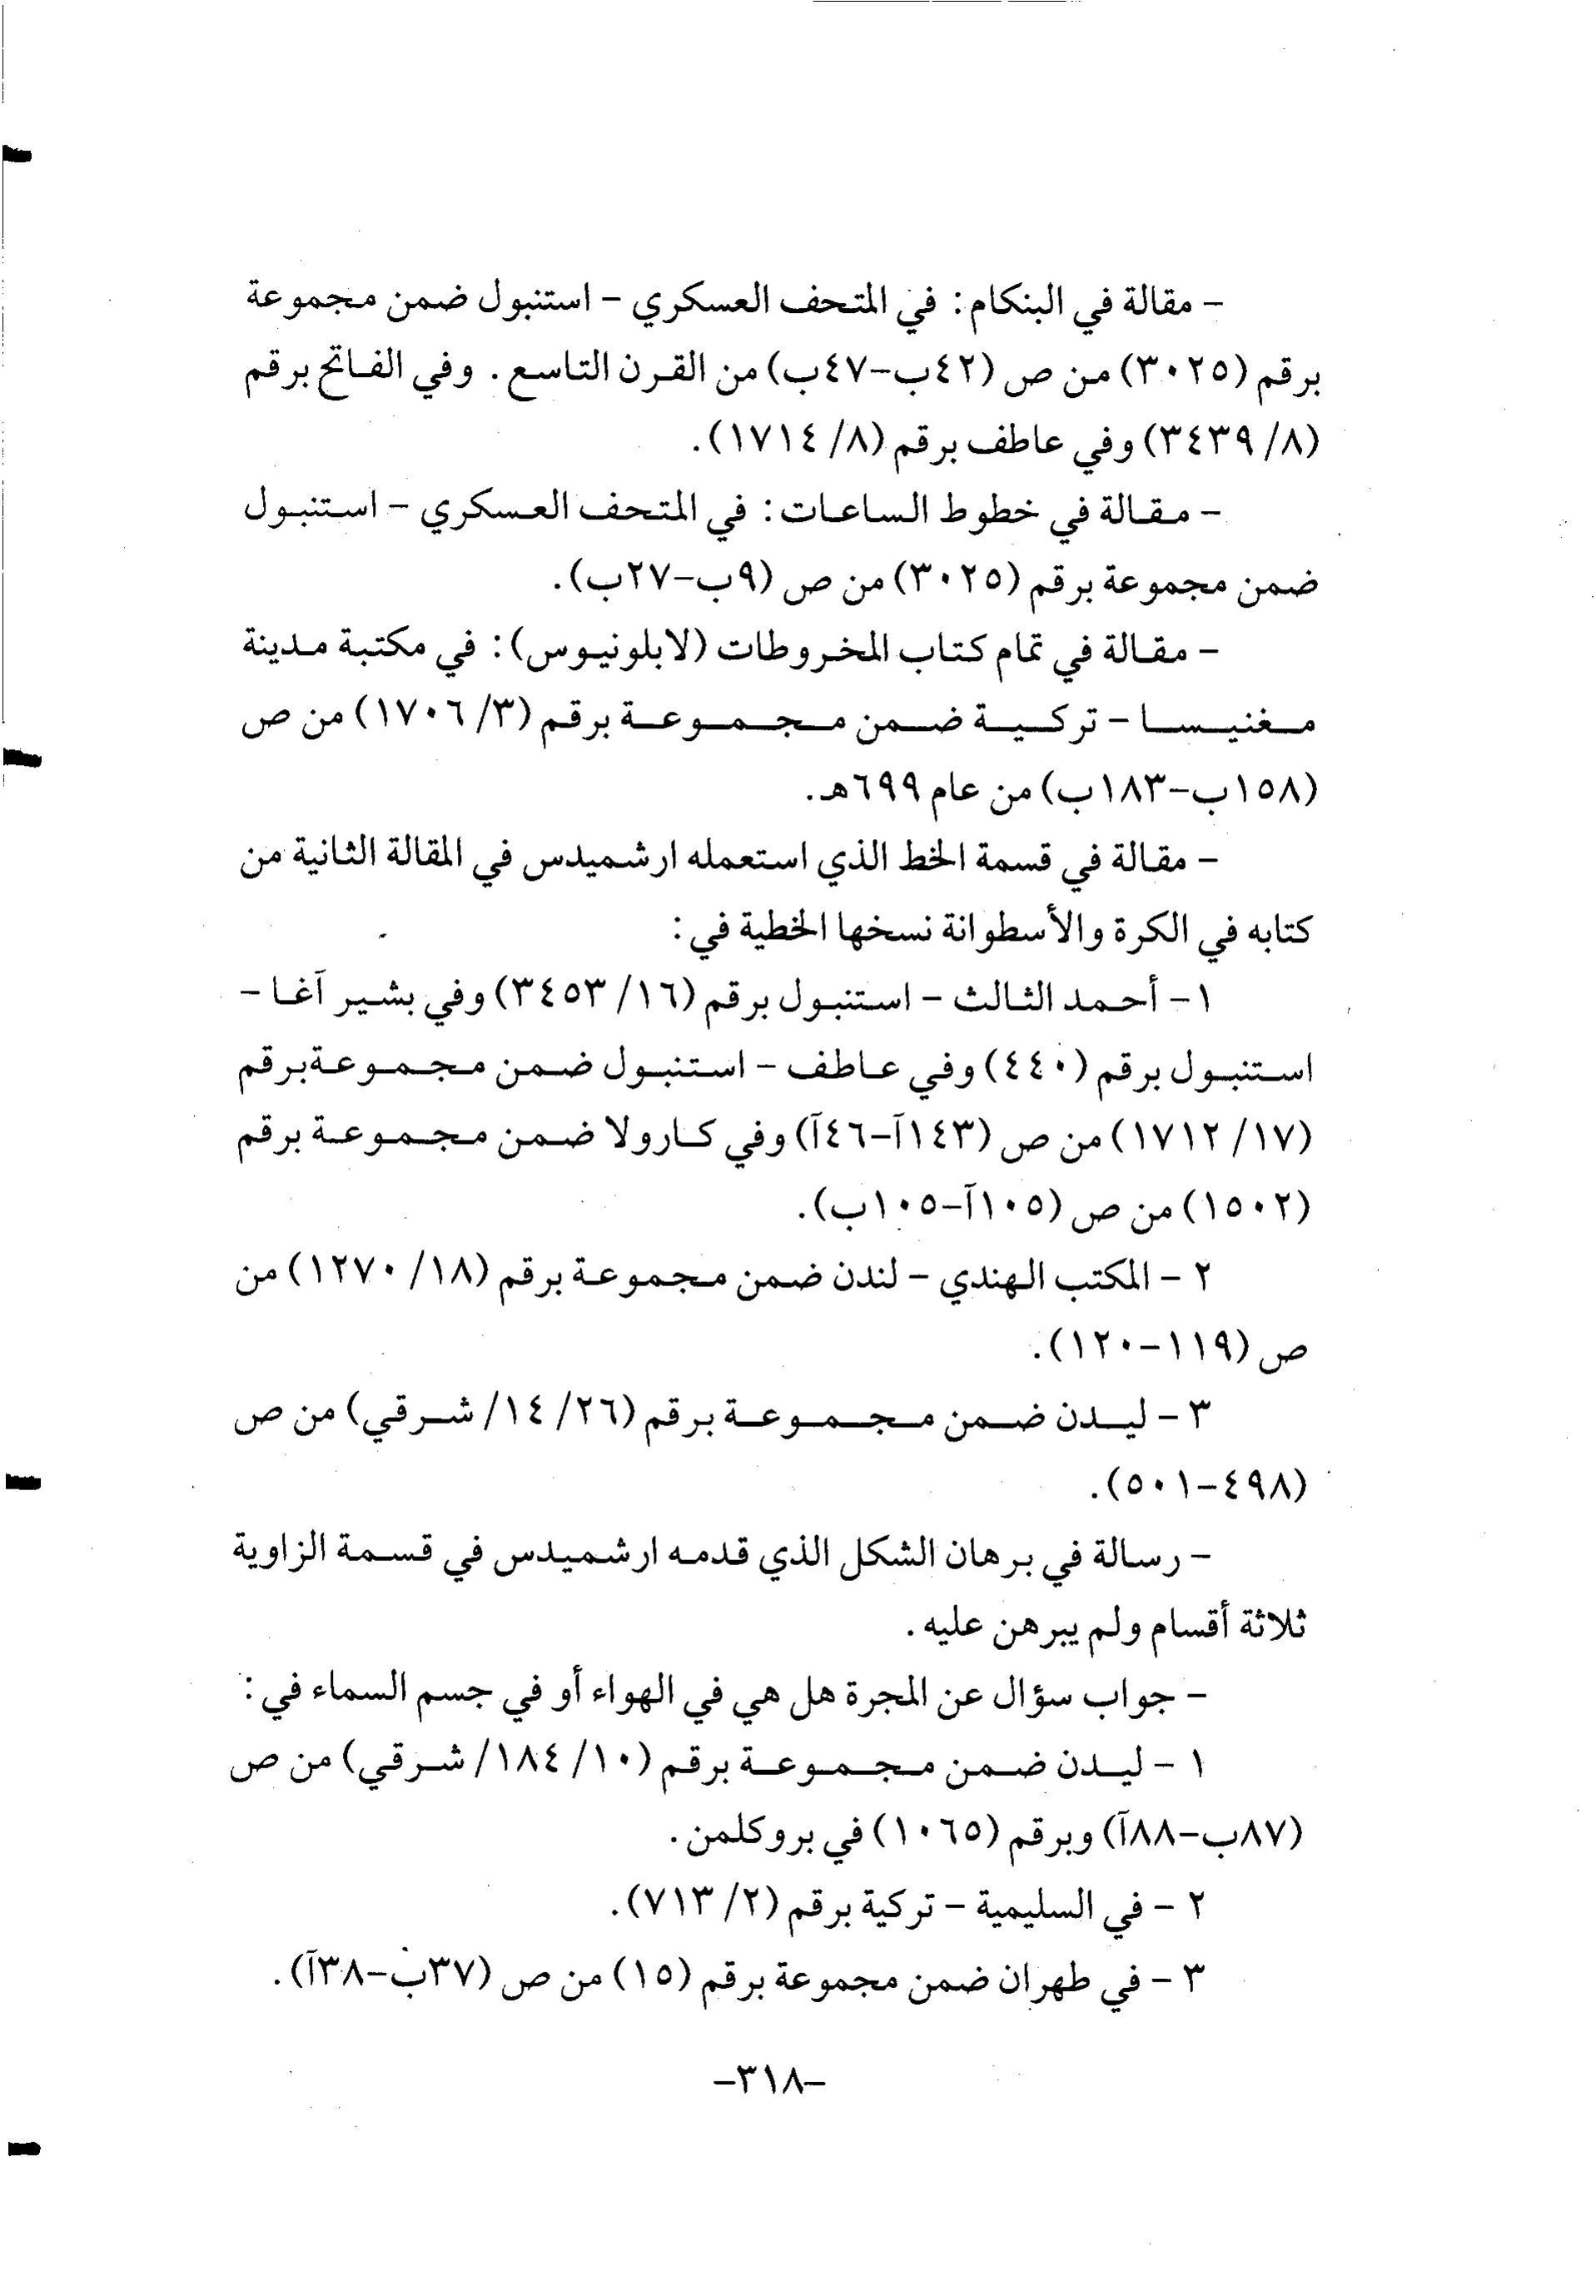 - مقالة في البنكام: في المتحف العسكري - استنبول ضمن مجموعة
برقم (٣٠٢٥) من ص (٤٢ب-٤٧ب) من القرن التاسع. وفي الفاتح برقم
(٣٤٣٩/٨) وفي عاطف برقم (١٧١٤/٨).
- مقالة في خطوط الساعات: في المتحف العسكري - استنبول
ضمن مجموعة برقم (٣٠٢٥) من ص (٩ب-٢٧ب).
- مقالة في تمام كتاب المخروطات (لابلونيوس): في مكتبة مدينة
مغنيسا - تركية ضمن مجموعة برقم (١٧٠٦/٣) من ص
(١٥٨ب-١٨٣ب) من عام ٦٩٩هـ.
- مقالة في قسمة الخط الذي استعمله ارشميدس في المقالة الثانية من
كتابه في الكرة والأسطوانة نسخها الخطية في:
١- أحمد الثالث - استنبول برقم (٣٤٥٣/١٦) وفي بشير آغا -
استنبول برقم (٤٤٠) وفي عاطف - استنبول ضمن مجموعة برقم
(١٧١٢/١٧) من ص (١٤٣آ-٤٦آ) وفي كارولا ضمن مجموعة برقم
(١٥٠٢) من ص (١٠٥آ-١٠٥ب).
٢ - المكتب الهندي - لندن ضمن مجموعة برقم (١٢٧٠/١٨) من
ص (١١٩-١٢٠).
٣ - ليدن ضمن مجموعة برقم (٢٦/ ١٤/ شرقي) من ص
(٤٩٨-٥٠١).
- رسالة في برهان الشكل الذي قدمه ارشميدس في قسمة الزاوية
ثلاثة أقسام ولم يبرهن عليه.
- جواب سؤال عن المجرة هل هي في الهواء أو في جسم السماء في:
١ - ليدن ضمن مجموعة برقم (١٠/ ١٨٤/ شرقي) من ص
(٨٧ب-٨٨آ) وبرقم (١٠٦٥) في بروكلمن.
٢ - في السليمية - تركية برقم (٧١٣/٢).
٣ - في طهران ضمن مجموعة برقم (١٥) من ص (٣٧ب-٣٨آ).
-٣١٨-